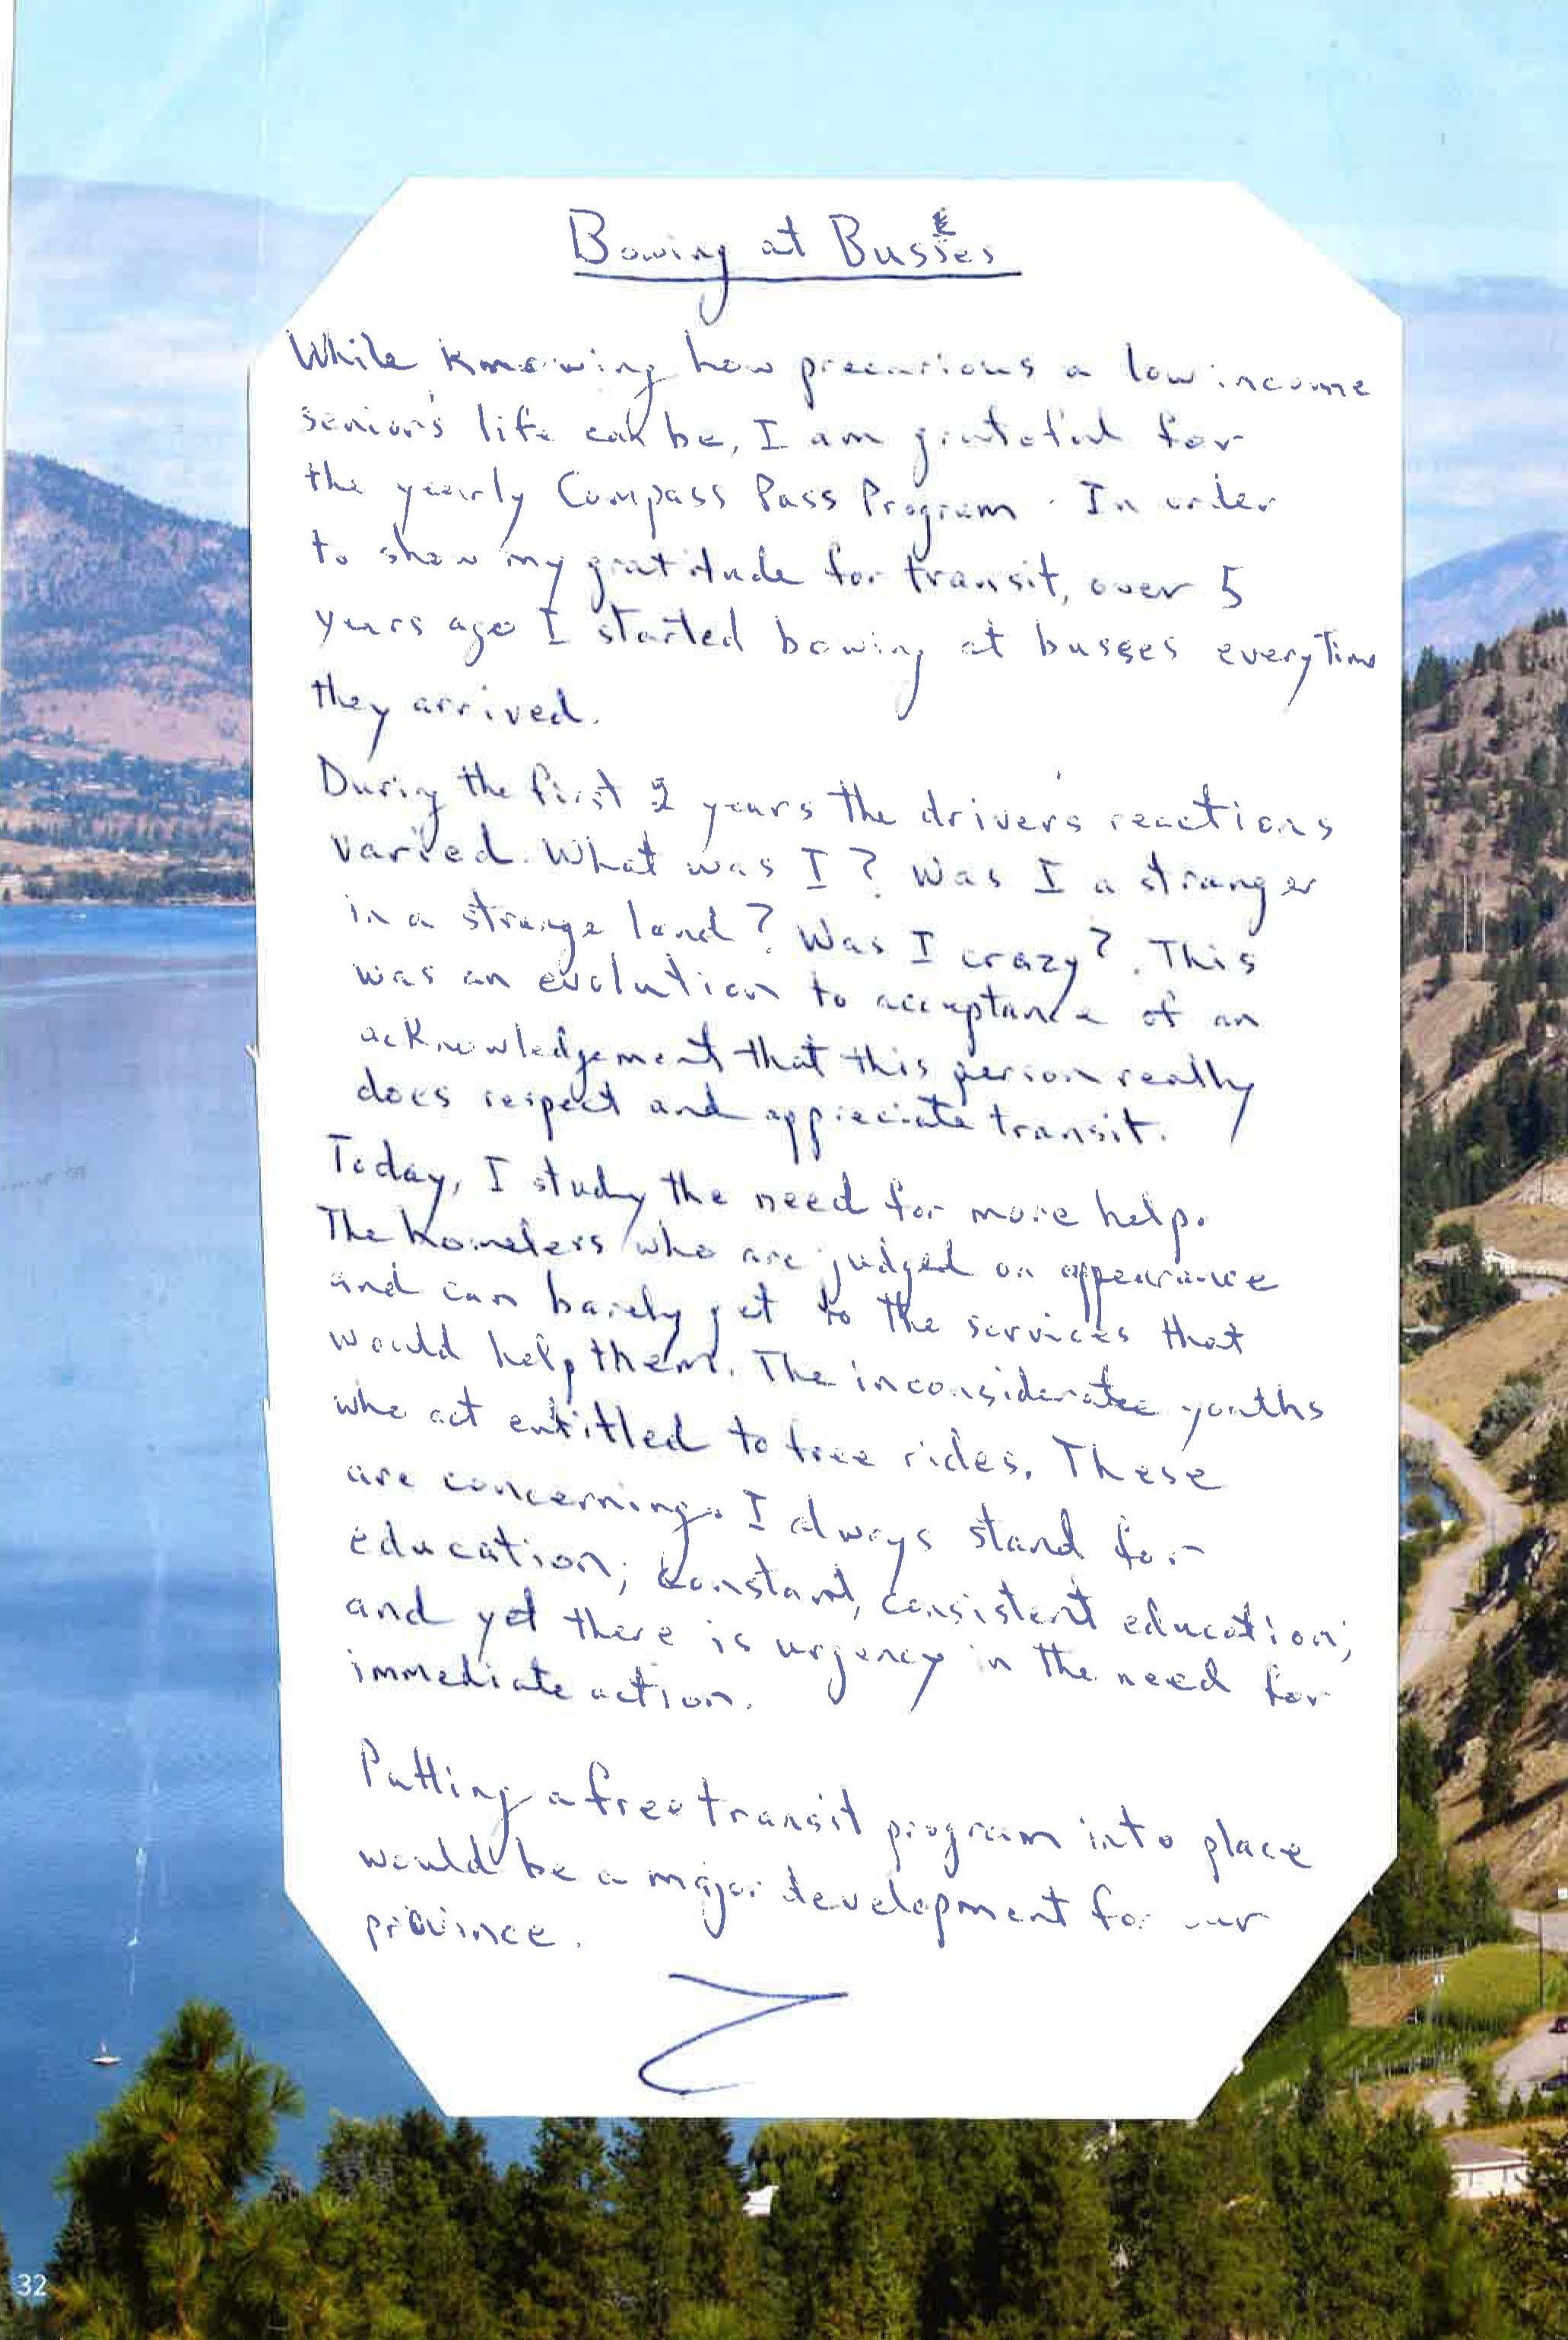 Bowing at Busses
While knowing how precarious a low income
senior's life can be, I am grateful for
the yearly Compass Pass Program. In order
to show my gratitude for transit, over 5
years ago I started bowing at busses everytime
they arrived.
During the first 2 years the driver's reactions
varied. What was I? Was I a stranger
in a strange land? Was I crazy?. This
was an evolution to acceptance of an
acknowledgement that this person really
does respect and appreciate transit.
Today, I study the need for more help.
The homeless who are judged on appearance
and can barely get to the services that
would help them. The inconsiderate youths
who act entitled to free rides. These
are concerning. I always stand for
education; constant, consistent education;
and yet there is urgency in the need for
immediate action.
Putting a free transit program into place
would be a major development for our
province.
32